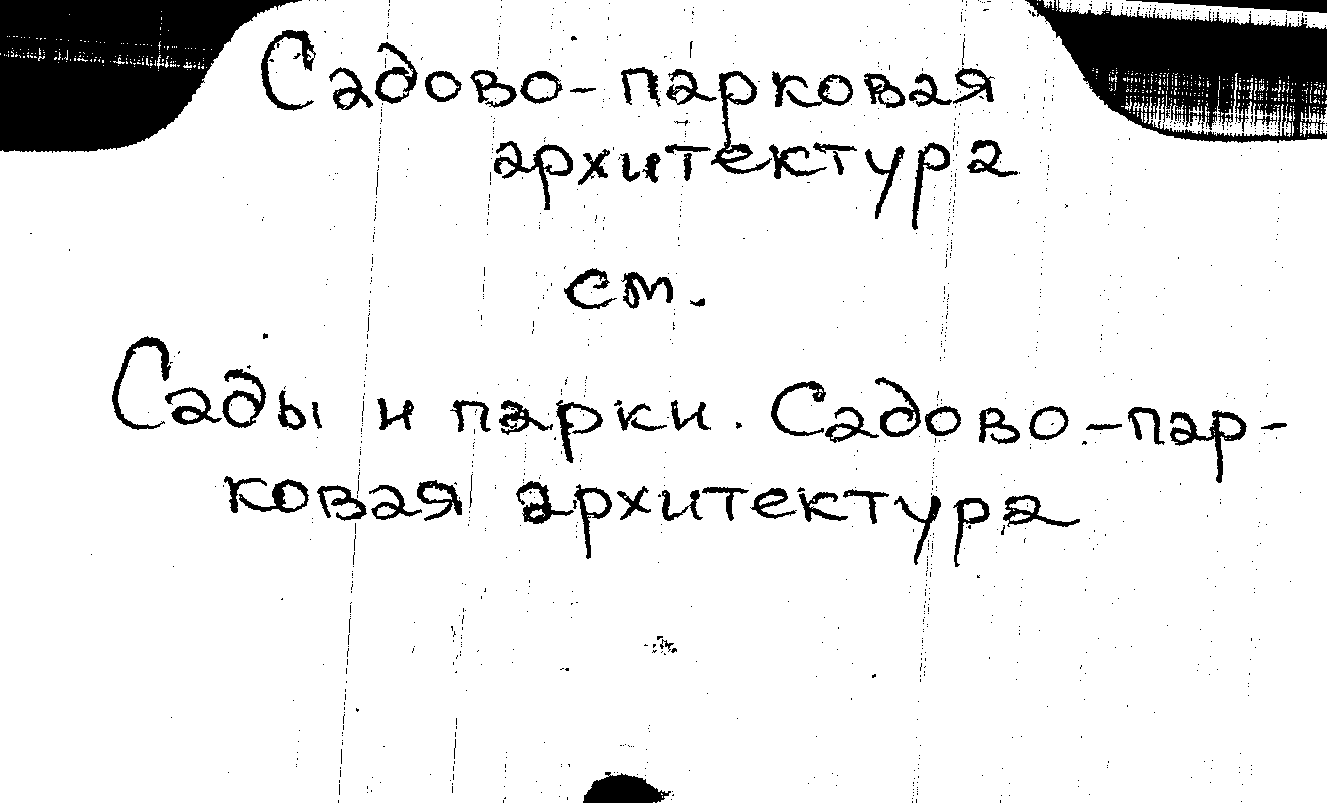 Садово-парковая
архитектура
см.
Сады и парки. Садово-пар-
ковая архитектура